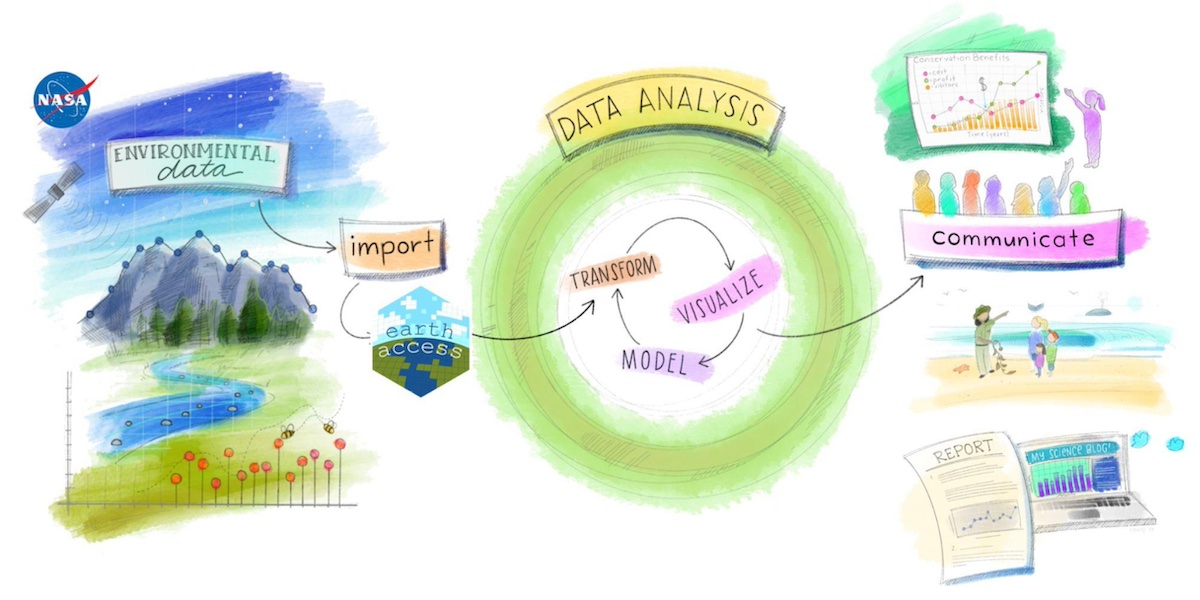 NASA
ENVIRONMENTAL
data
import
earth
access
DATA ANALYSIS
TRANSFORM
VISUALIZE
MODEL
Conservation Benefits
cost
profit
visitors
$
Time (years)
communicate
REPORT
MY SCIENCE BLOG!